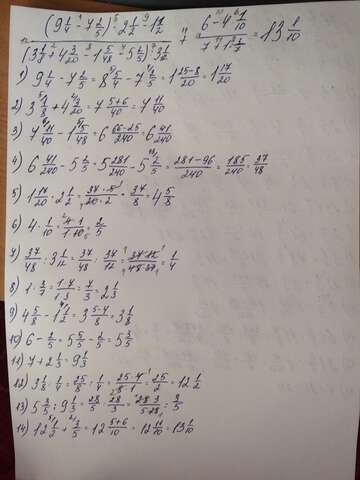 ((9 1/4 - 7 2/5) · 2 1/2 - 1 1/2) / ((3 1/8 + 4 3/20 - 1 5/48 - 5 2/5) : 3 1/12) + (6 - 4 · 1/10) / (7 + 1 · 7/3) = 13 1/10
1) 9 1/4 - 7 2/5 = 8 5/4 - 7 2/5 = 1 (25-8)/20 = 1 17/20
2) 3 1/8 + 4 3/20 = 7 (5+6)/40 = 7 11/40
3) 7 11/40 - 1 5/48 = 6 (66-25)/240 = 6 41/240
4) 6 41/240 - 5 2/5 = 5 281/240 - 5 2/5 = (281-96)/240 = 185/240 = 37/48
5) 1 17/20 · 2 1/2 = (37·5)/(20·2) = 37/8 = 4 5/8
6) 4 · 1/10 = (4·1)/(1·10) = 2/5
7) 37/48 : 3 1/12 = 37/48 : 37/12 = (37·12)/(48·37) = 1/4
8) 1 · 7/3 = (1·7)/(1·3) = 7/3 = 2 1/3
9) 4 5/8 - 1 1/2 = 3 (5-4)/8 = 3 1/8
10) 6 - 2/5 = 5 5/5 - 2/5 = 5 3/5
11) 7 + 2 1/3 = 9 1/3
12) 3 1/8 : 1/4 = 25/8 : 1/4 = (25·4)/(8·1) = 25/2 = 12 1/2
13) 5 3/5 : 9 1/3 = 28/5 : 28/3 = (28·3)/(5·28) = 3/5
14) 12 1/2 + 3/5 = 12 (5+6)/10 = 12 11/10 = 13 1/10